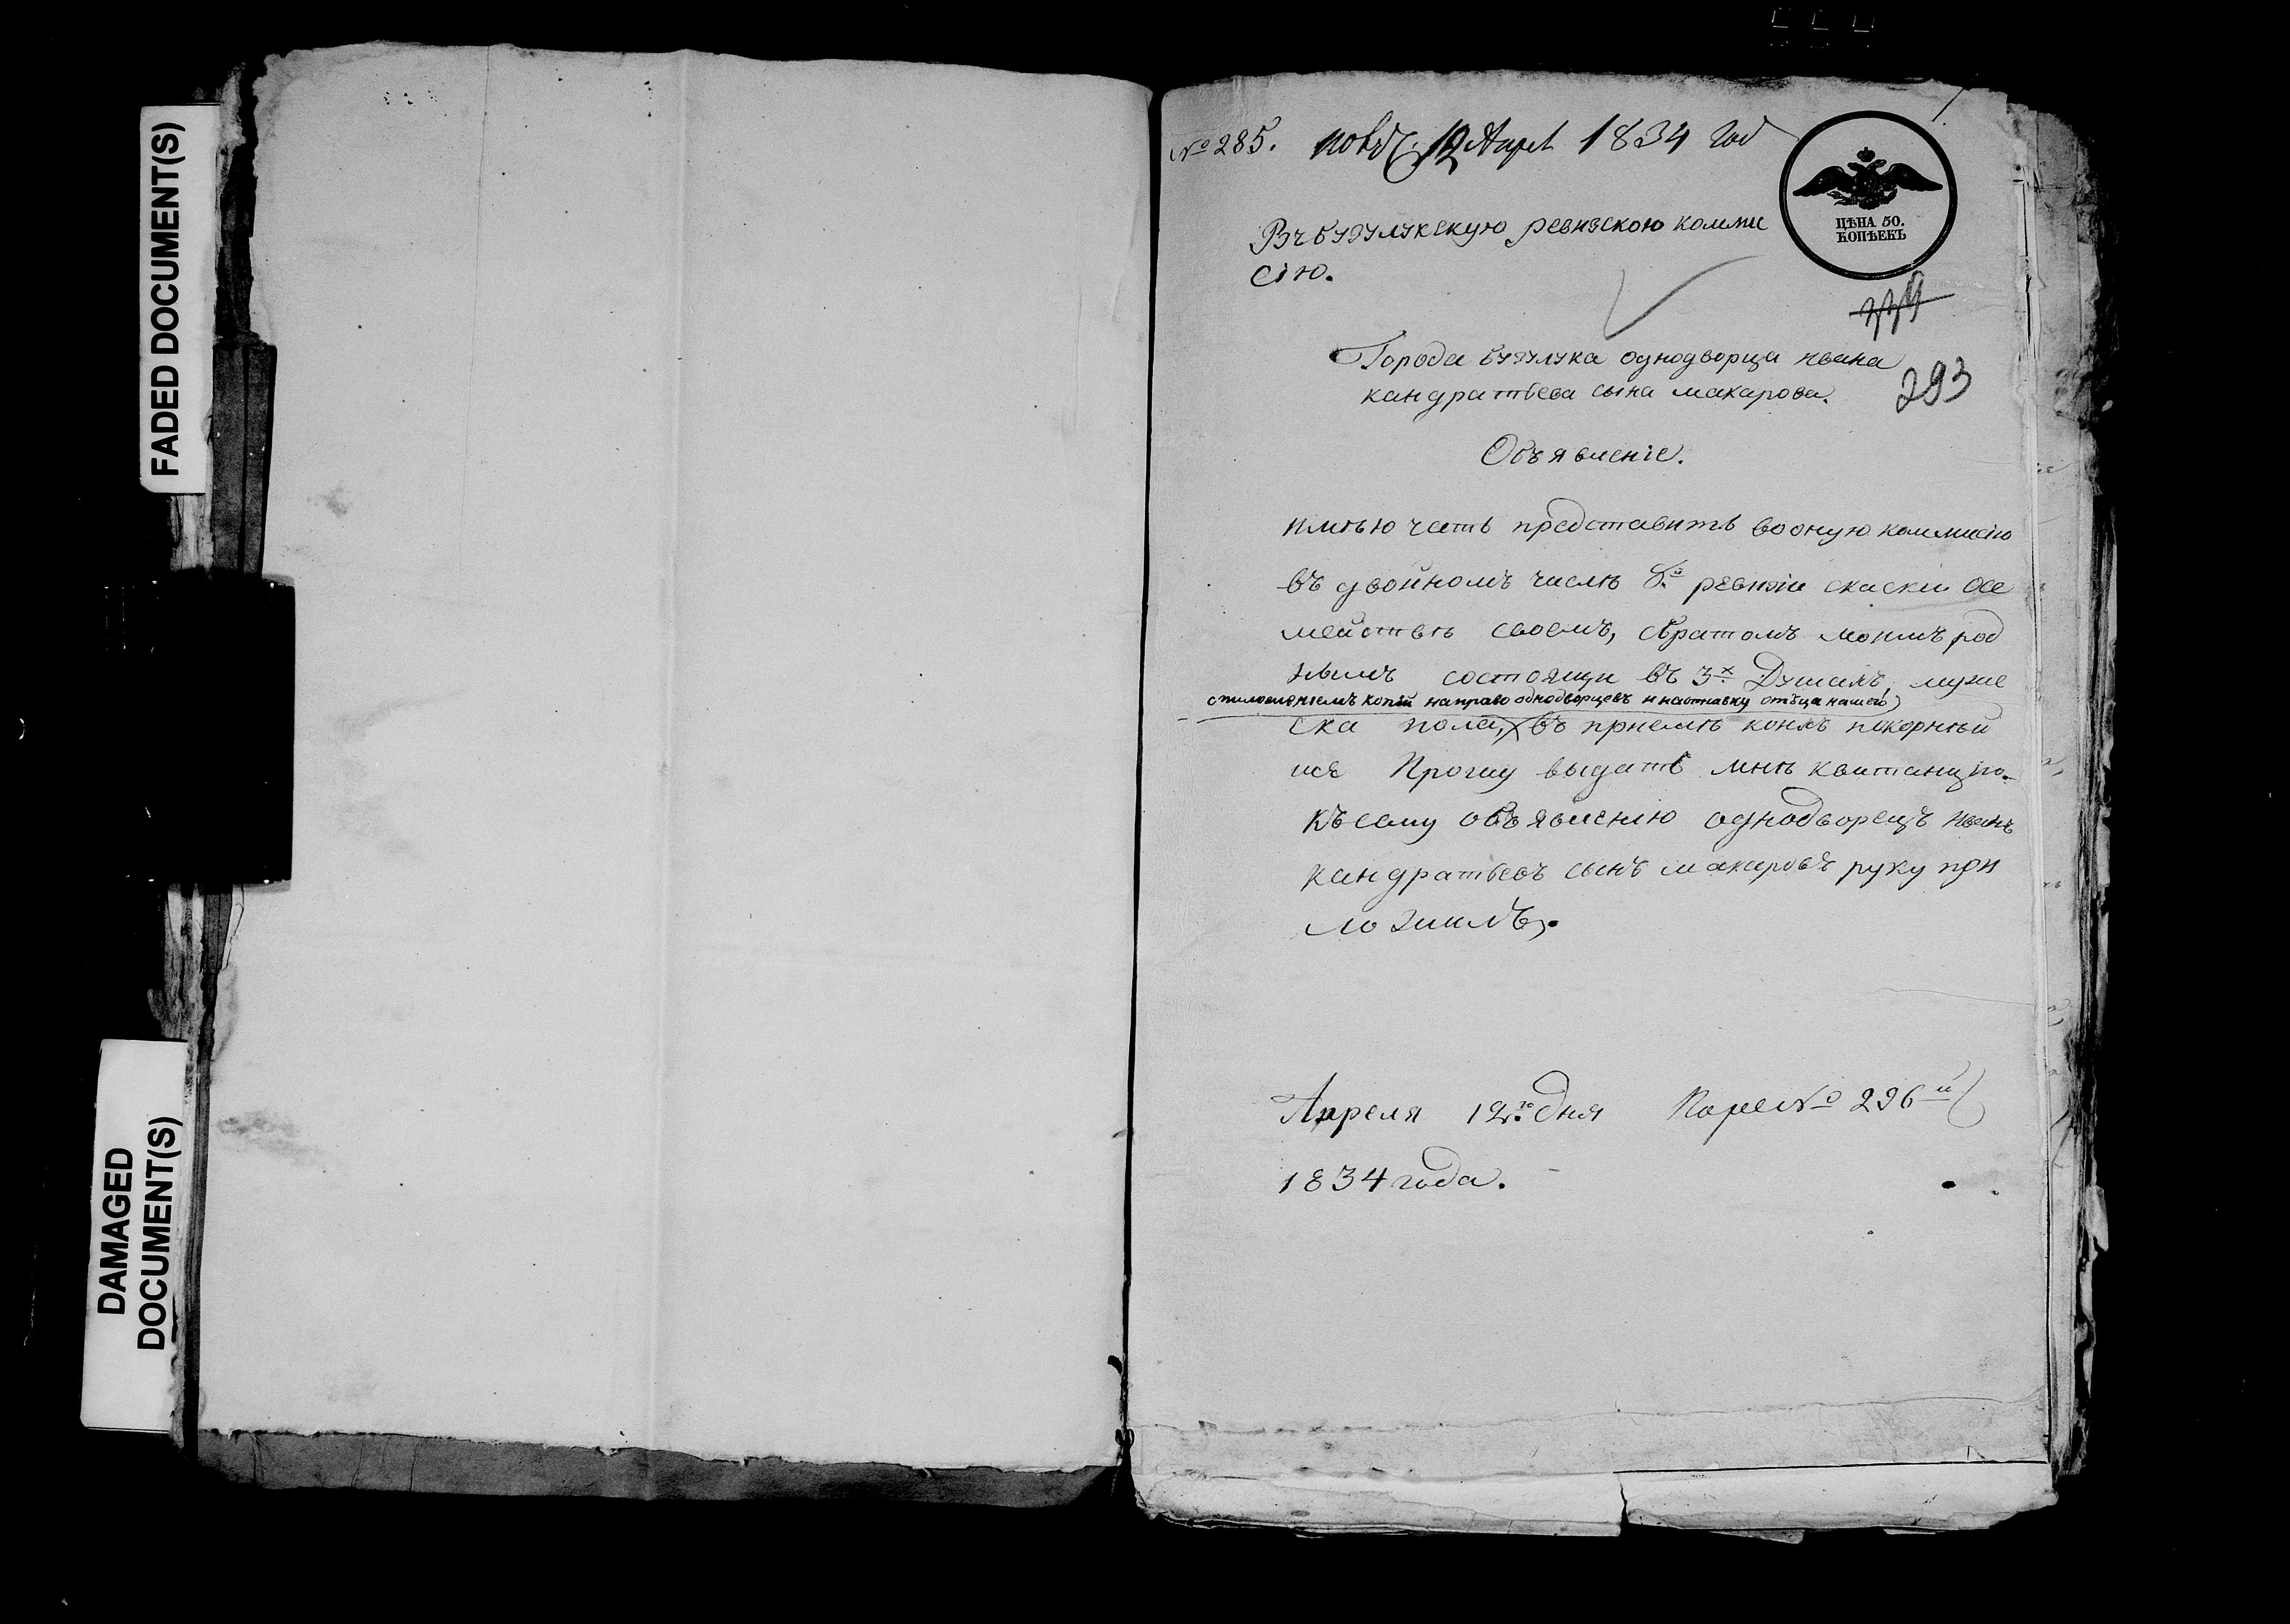 FADED DOCUMENT(S)
DAMAGED
DOCUMENT(S)
№ 285. 12 Апрел 1834 год
ЦѢНА 50.
КОПѢЕКЪ
Въ бузулукскую ревизскою комми
сiю.
Города бузулука однодворца ивана
293
кандратьева сына макарова.
Объявленiе.
имѣю честь представить воону̀ю коммисiю
въ двойномъ числѣ 8й ревизiи скаски осе
мействѣ своемъ, сбратомъ моимъ род
нымъ состоящи въ 3х Душахъ, муже
сприложенiемъ копiй направо однодворцевъ и наотставку отъца нашего
ска пола, въ приемѣ коихъ покорнѣй
ше Прошу выдать мнѣ квитанцiю.
Къ сему объявленiю однодворецъ иванъ
кандратьевъ сынъ макаровъ руку при
ложилъ.
Апреля 12го дня № 296й
1834 года.